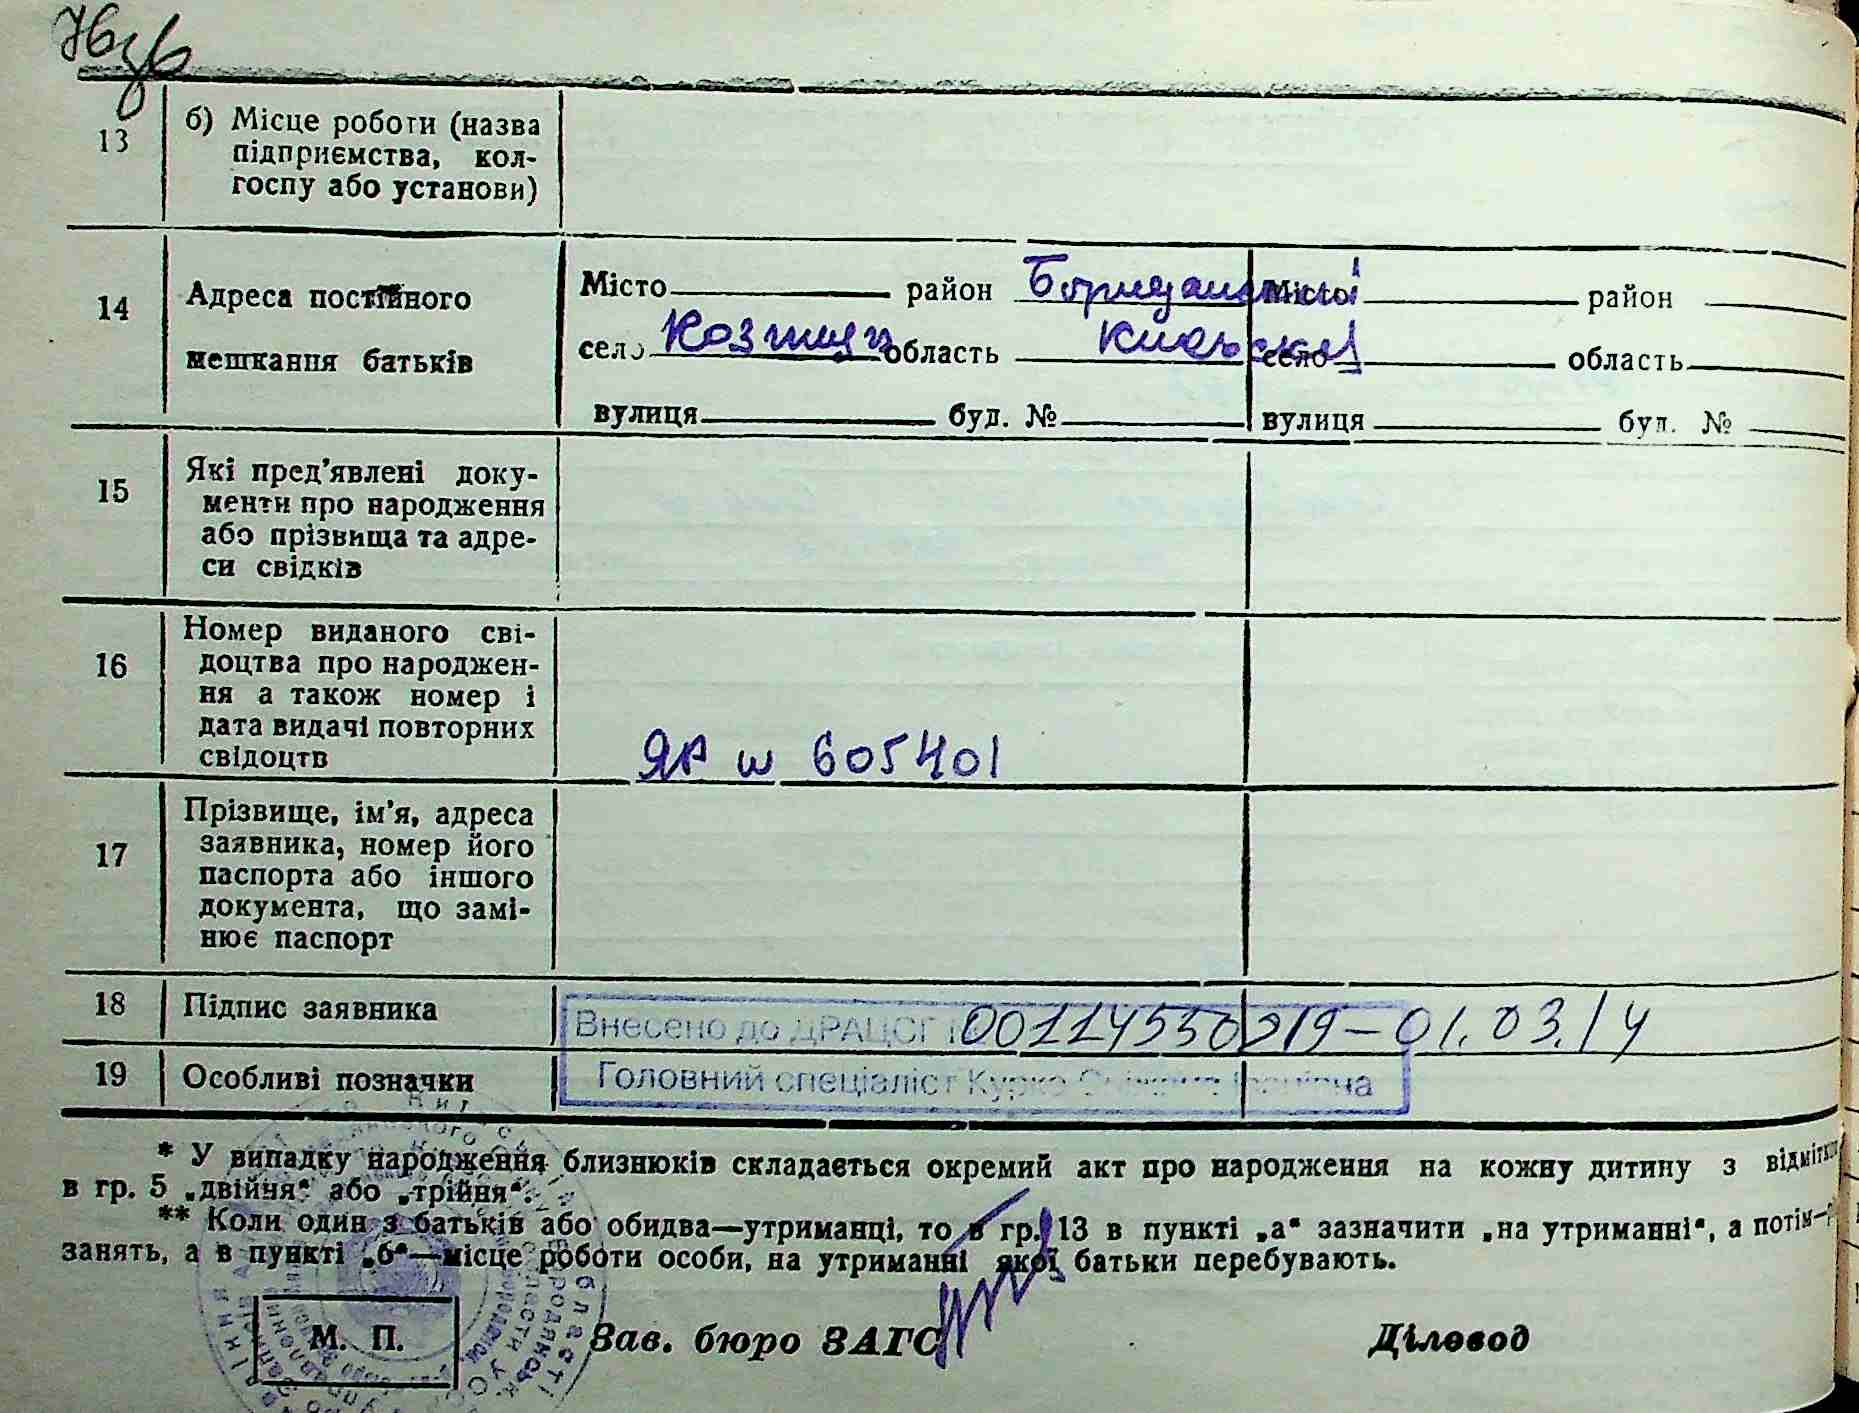 76
13 б) Місце роботи (назва
підприємства, кол-
госпу або установи)
14 Адреса постійного
мешкання батьків
Місто район Місто район
село область Київській село область
вулиця буд. № вулиця буд. №
15 Які пред'явлені доку-
менти про народження
або прізвища та адре-
си свідків
16 Номер виданого сві-
доцтва про народжен-
ня а також номер і
дата видачі повторних
свідоцтв
ЯР ш 605401
17 Прізвище, ім'я, адреса
заявника, номер його
паспорта або іншого
документа, що замі-
нює паспорт
18 Підпис заявника
Внесено до ДРАЦСГ 00114550219-01.03.14
19 Особливі позначки
Головний спеціаліст
* У випадку народження близнюків складається окремий акт про народження на кожну дитину з
в гр. 5 „двійня“ або „трійня“.
** Коли один з батьків або обидва—утриманці, то в гр. 13 в пункті „а“ зазначити „на утриманні“, а потім—
занять, а в пункті „б“—місце роботи особи, на утриманні якої батьки перебувають.
М. П. Зав. бюро ЗАГС Діловод